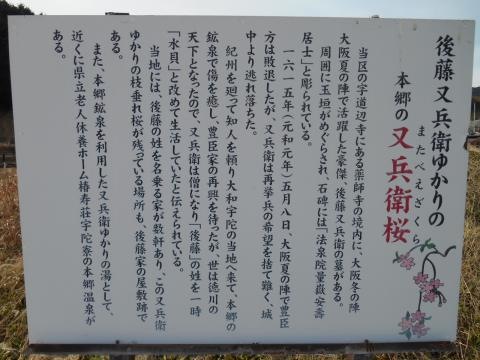 後藤又兵衛ゆかりの
本郷の又兵衛桜
またべえざくら
当区の字道辺寺にある薬師寺の境内に、大阪冬の陣
大阪夏の陣で活躍した豪傑・後藤又兵衛の墓がある。
周囲に玉垣がめぐらされ、石碑には「法泉院量嶽安壽
居士」と彫られている。
一六一五年（元和元年）五月八日、大阪夏の陣で豊臣
方は敗退したが、又兵衛は再挙兵の希望を捨て難く、城
中より逃れ落ちた。
紀州を廻って知人を頼り大和宇陀の当地へ来て、本郷の
鉱泉で傷を癒し、豊臣家の再興を待ったが、世は徳川の
天下となったので、又兵衛は僧になり「後藤」の姓を一時
「水貝」と改めて生活していたと伝えられている。
当地には、後藤の姓を名乗る家が数軒あり、この又兵衛
ゆかりの枝垂れ桜が残っている場所も、後藤家の屋敷跡で
ある。
また、本郷鉱泉を利用した又兵衛ゆかりの湯として、
近くに県立老人休養ホーム椿寿荘宇陀寮の本郷温泉が
ある。